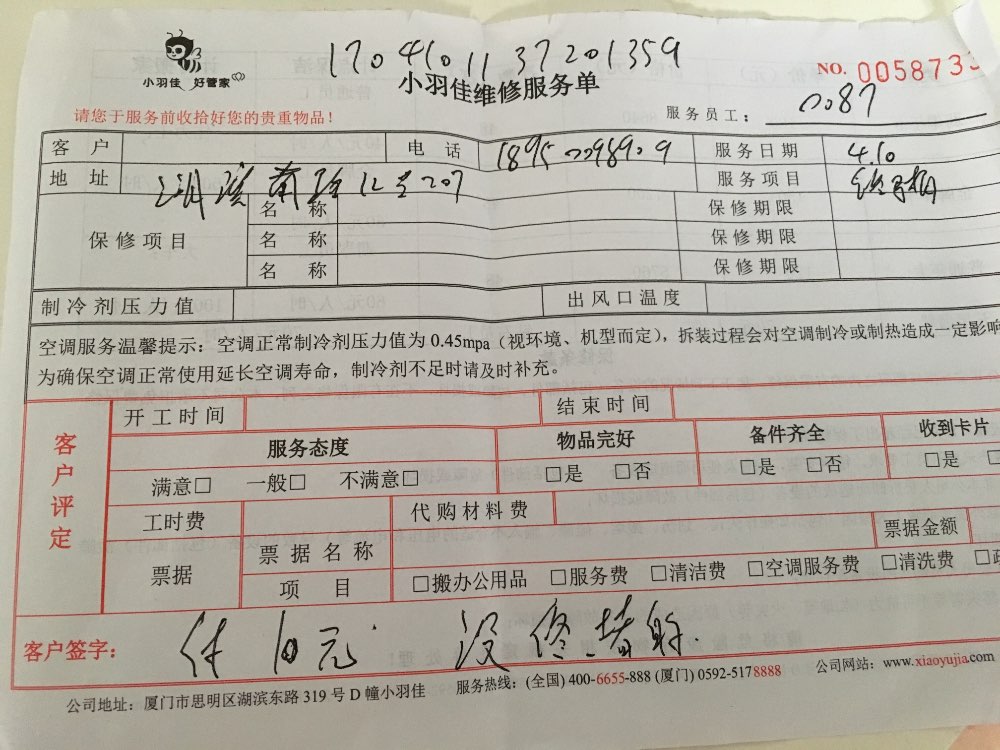 1704101137201359
小羽佳 好管家
小羽佳维修服务单
NO. 005873
请您于服务前收拾好您的贵重物品！
服务员工： 0087
客 户 电 话 服务日期 4.10
地 址 12号207 服务项目
保修项目 名 称 保修期限
名 称 保修期限
名 称 保修期限
制冷剂压力值 出风口温度
空调服务温馨提示：空调正常制冷剂压力值为 0.45mpa（视环境、机型而定），拆装过程会对空调制冷或制热造成一定影响
为确保空调正常使用延长空调寿命，制冷剂不足时请及时补充。
客户评定
开工时间 结束时间
服务态度 物品完好 备件齐全 收到卡片
满意□ 一般□ 不满意□ □是 □否 □是 □否 □是
工时费 代购材料费
票据 票据名称 票据金额
项 目 □搬办公用品 □服务费 □清洁费 □空调服务费 □清洗费
客户签字： 付10元 没
公司地址：厦门市思明区湖滨东路 319 号 D 幢小羽佳 服务热线：(全国) 400-6655-888 (厦门) 0592-5178888 公司网站：www.xiaoyujia.com